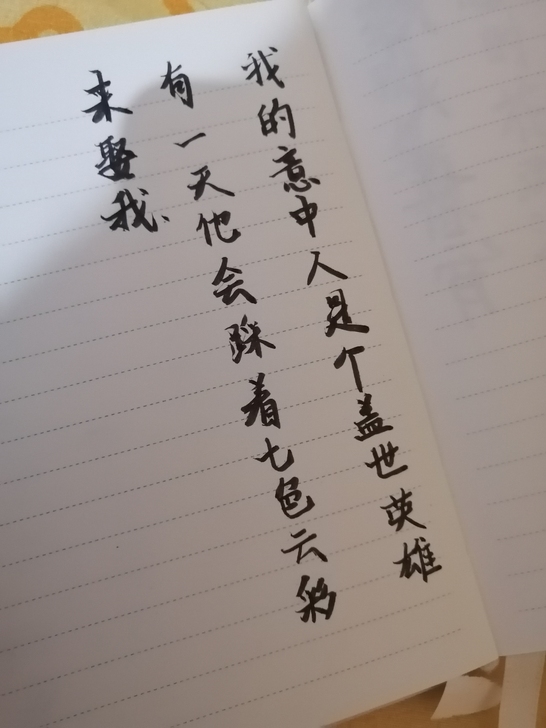 我的意中人是个盖世英雄
有一天他会踩着七色云彩
来娶我.